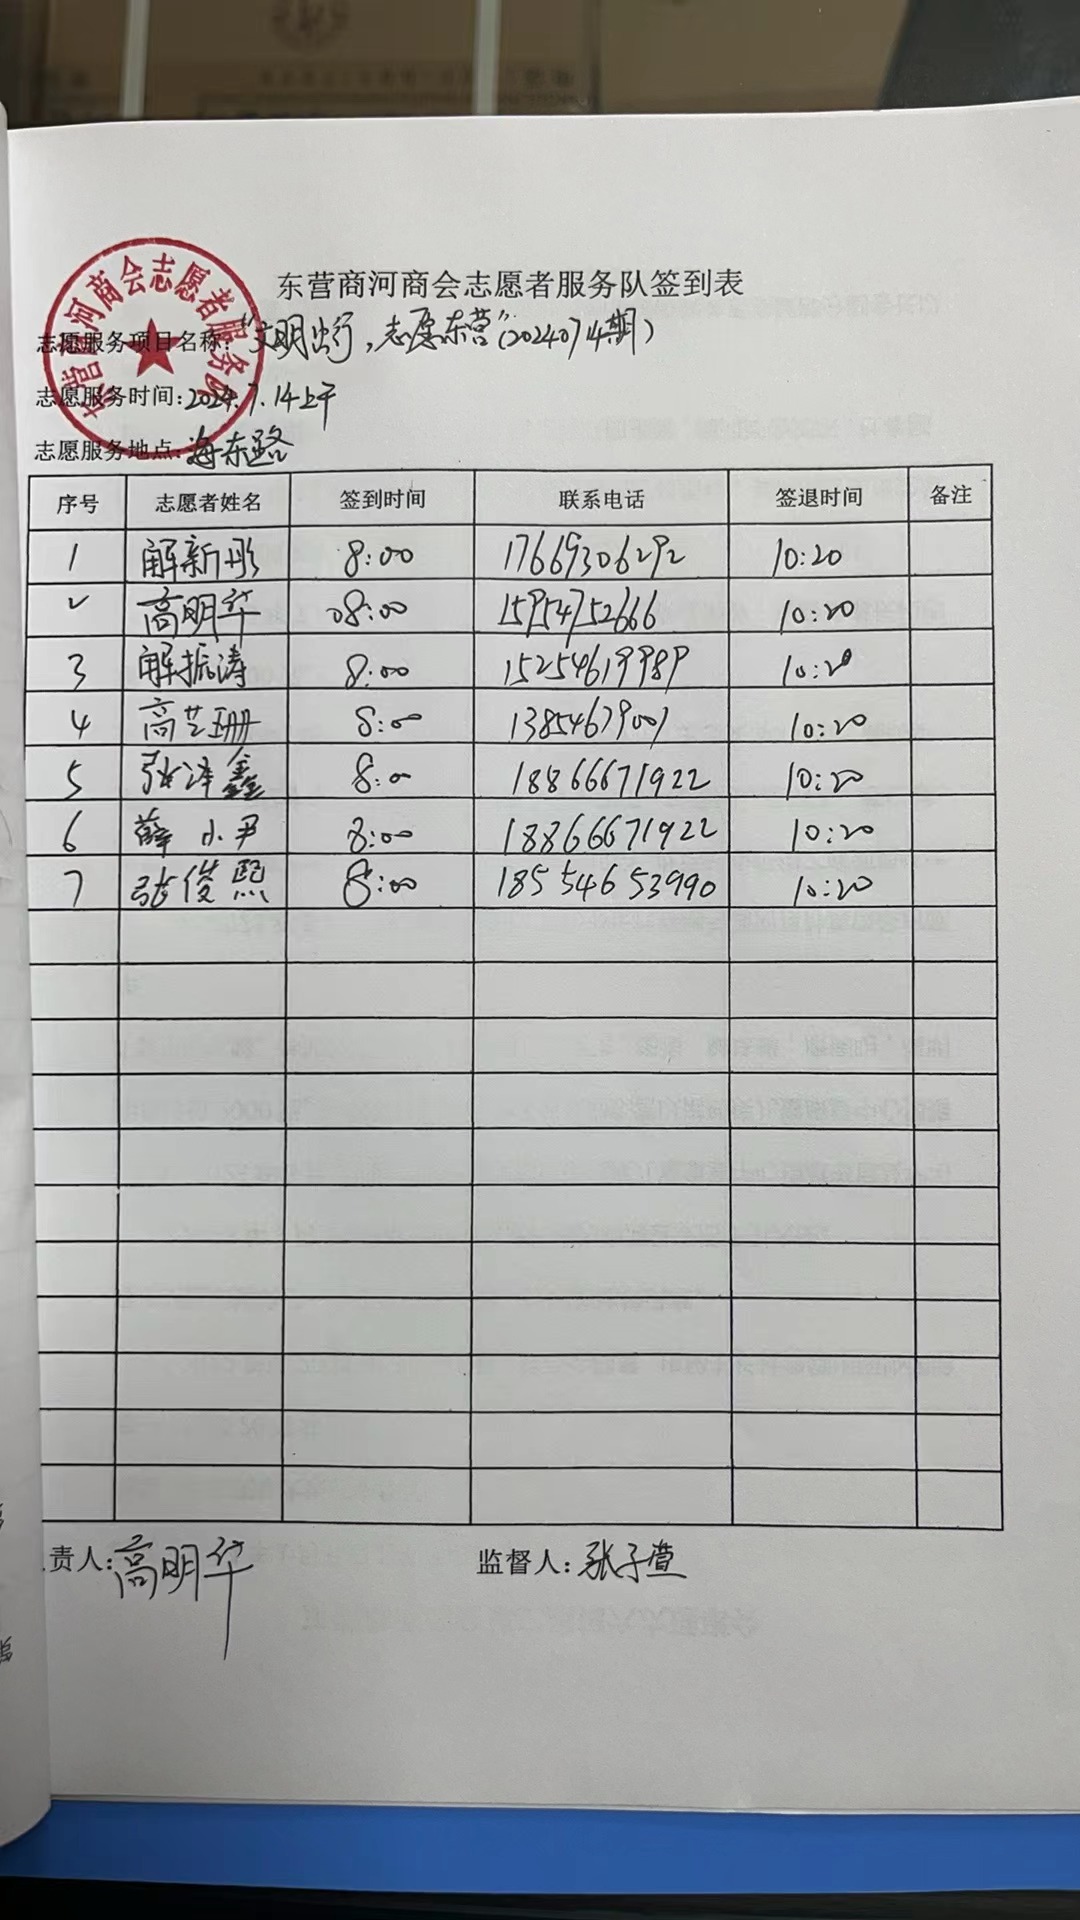 东营商河商会志愿者服务队
东营商河商会志愿者服务队签到表
志愿服务项目名称:“文明出行,志愿东营”(20240714期)
志愿服务时间:2024.7.14上午
志愿服务地点:海东路
序号 志愿者姓名 签到时间 联系电话 签退时间 备注
1 解新彤 8:00 17669306292 10:20
2 高明华 08:00 15954752666 10:20
3 解振涛 8:00 15254619989 10:20
4 高艺珊 8:00 13854679001 10:20
5 张泽鑫 8:00 18866671922 10:20
6 薛小尹 8:00 18866671922 10:20
7 张俊熙 8:00 18554653990 10:20
责人:高明华 监督人:张子萱